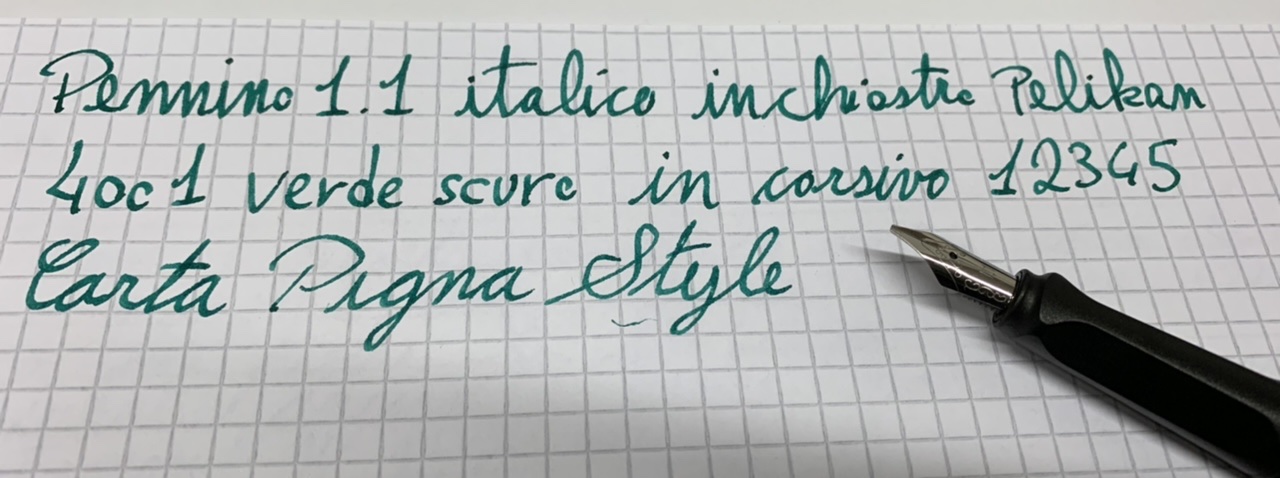 Pennino 1.1 italico inchiostro Pelikan
4001 verde scuro in corsivo 12345
Carta Pigna Style